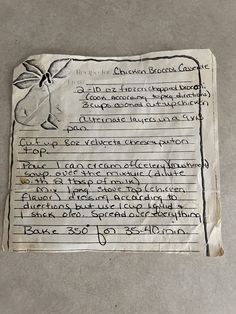 Recipe for Chicken Broccoli Casserole
2-10 oz frozen chopped broccoli
(cook according to pkg directions)
3 cups cut up chicken
alternate layers in a 9x13
pan.
Cut up 8oz velveeta cheese put on
top.
Pour 1 can cream of (celery
soup over the mixture (dilute
with 2 tbsp of milk)
Mix 1 pkg stove top (chicken
flavor) dressing according to
directions but use 1 cup liquid &
1 stick oleo. Spread over everything
Bake 350° for 35-40 min.